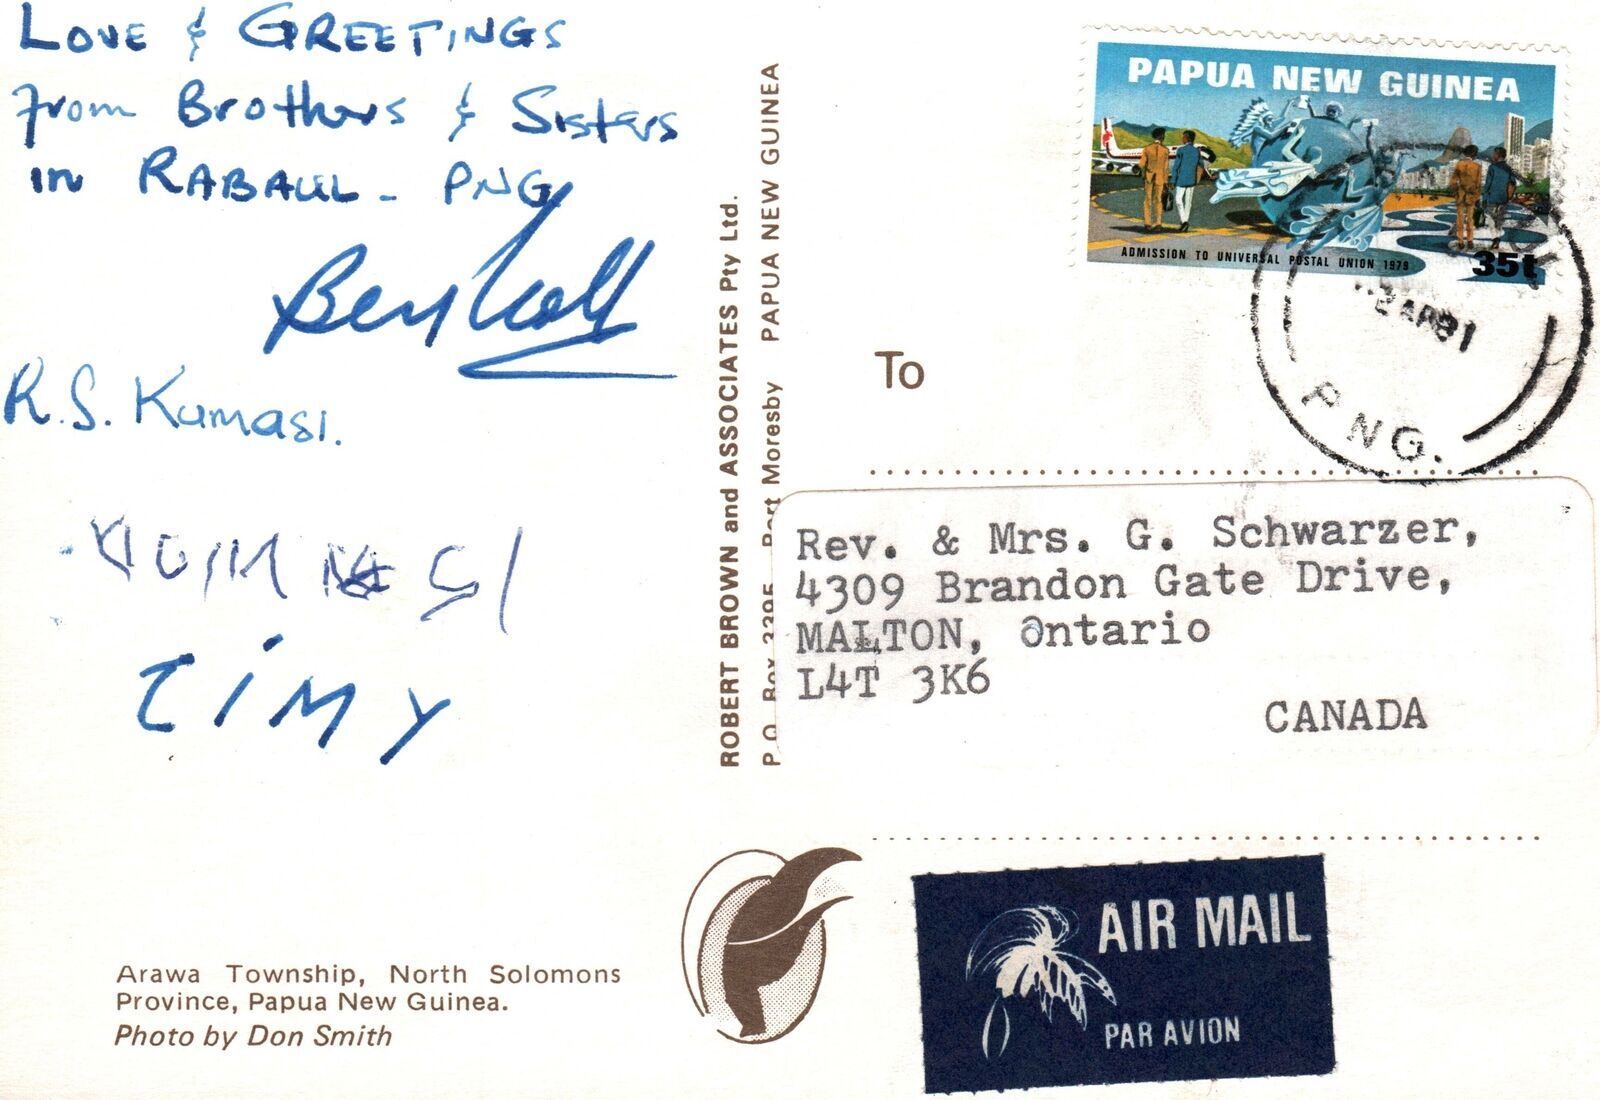 LOVE & GREETINGS
from Brothers & Sisters
in RABAUL - PNG
R.S. Kumasi.
TIMY
Arawa Township, North Solomons
Province, Papua New Guinea.
Photo by Don Smith
ROBERT BROWN and ASSOCIATES Pty Ltd.
P.O. Box 3395 Port Moresby PAPUA NEW GUINEA
PAPUA NEW GUINEA
ADMISSION TO UNIVERSAL POSTAL UNION 1979
35t
2 APR 81
P.N.G.
To
Rev. & Mrs. G. Schwarzer,
4309 Brandon Gate Drive,
MALTON, Ontario
L4T 3K6
CANADA
AIR MAIL
PAR AVION